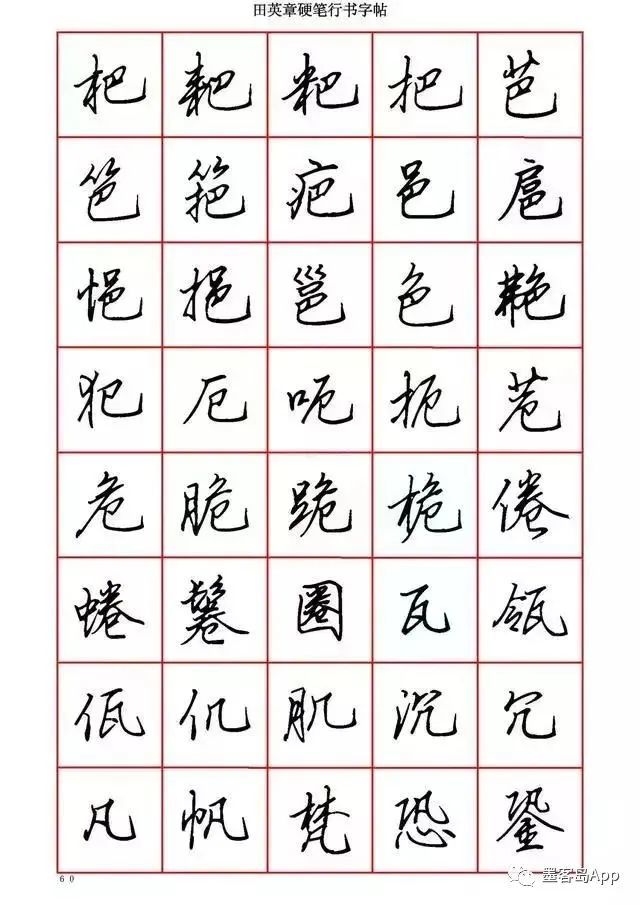 田英章硬笔行书字帖
杷 耙 粑 把 芭
笆 筢 疤 邑 扈
悒 挹 邕 色 艴
犯 厄 呃 扼 苊
危 脆 跪 桅 倦
蜷 鬈 圈 瓦 瓴
佤 仉 肌 沉 冗
凡 帆 梵 恐 銎
60
墨客岛App